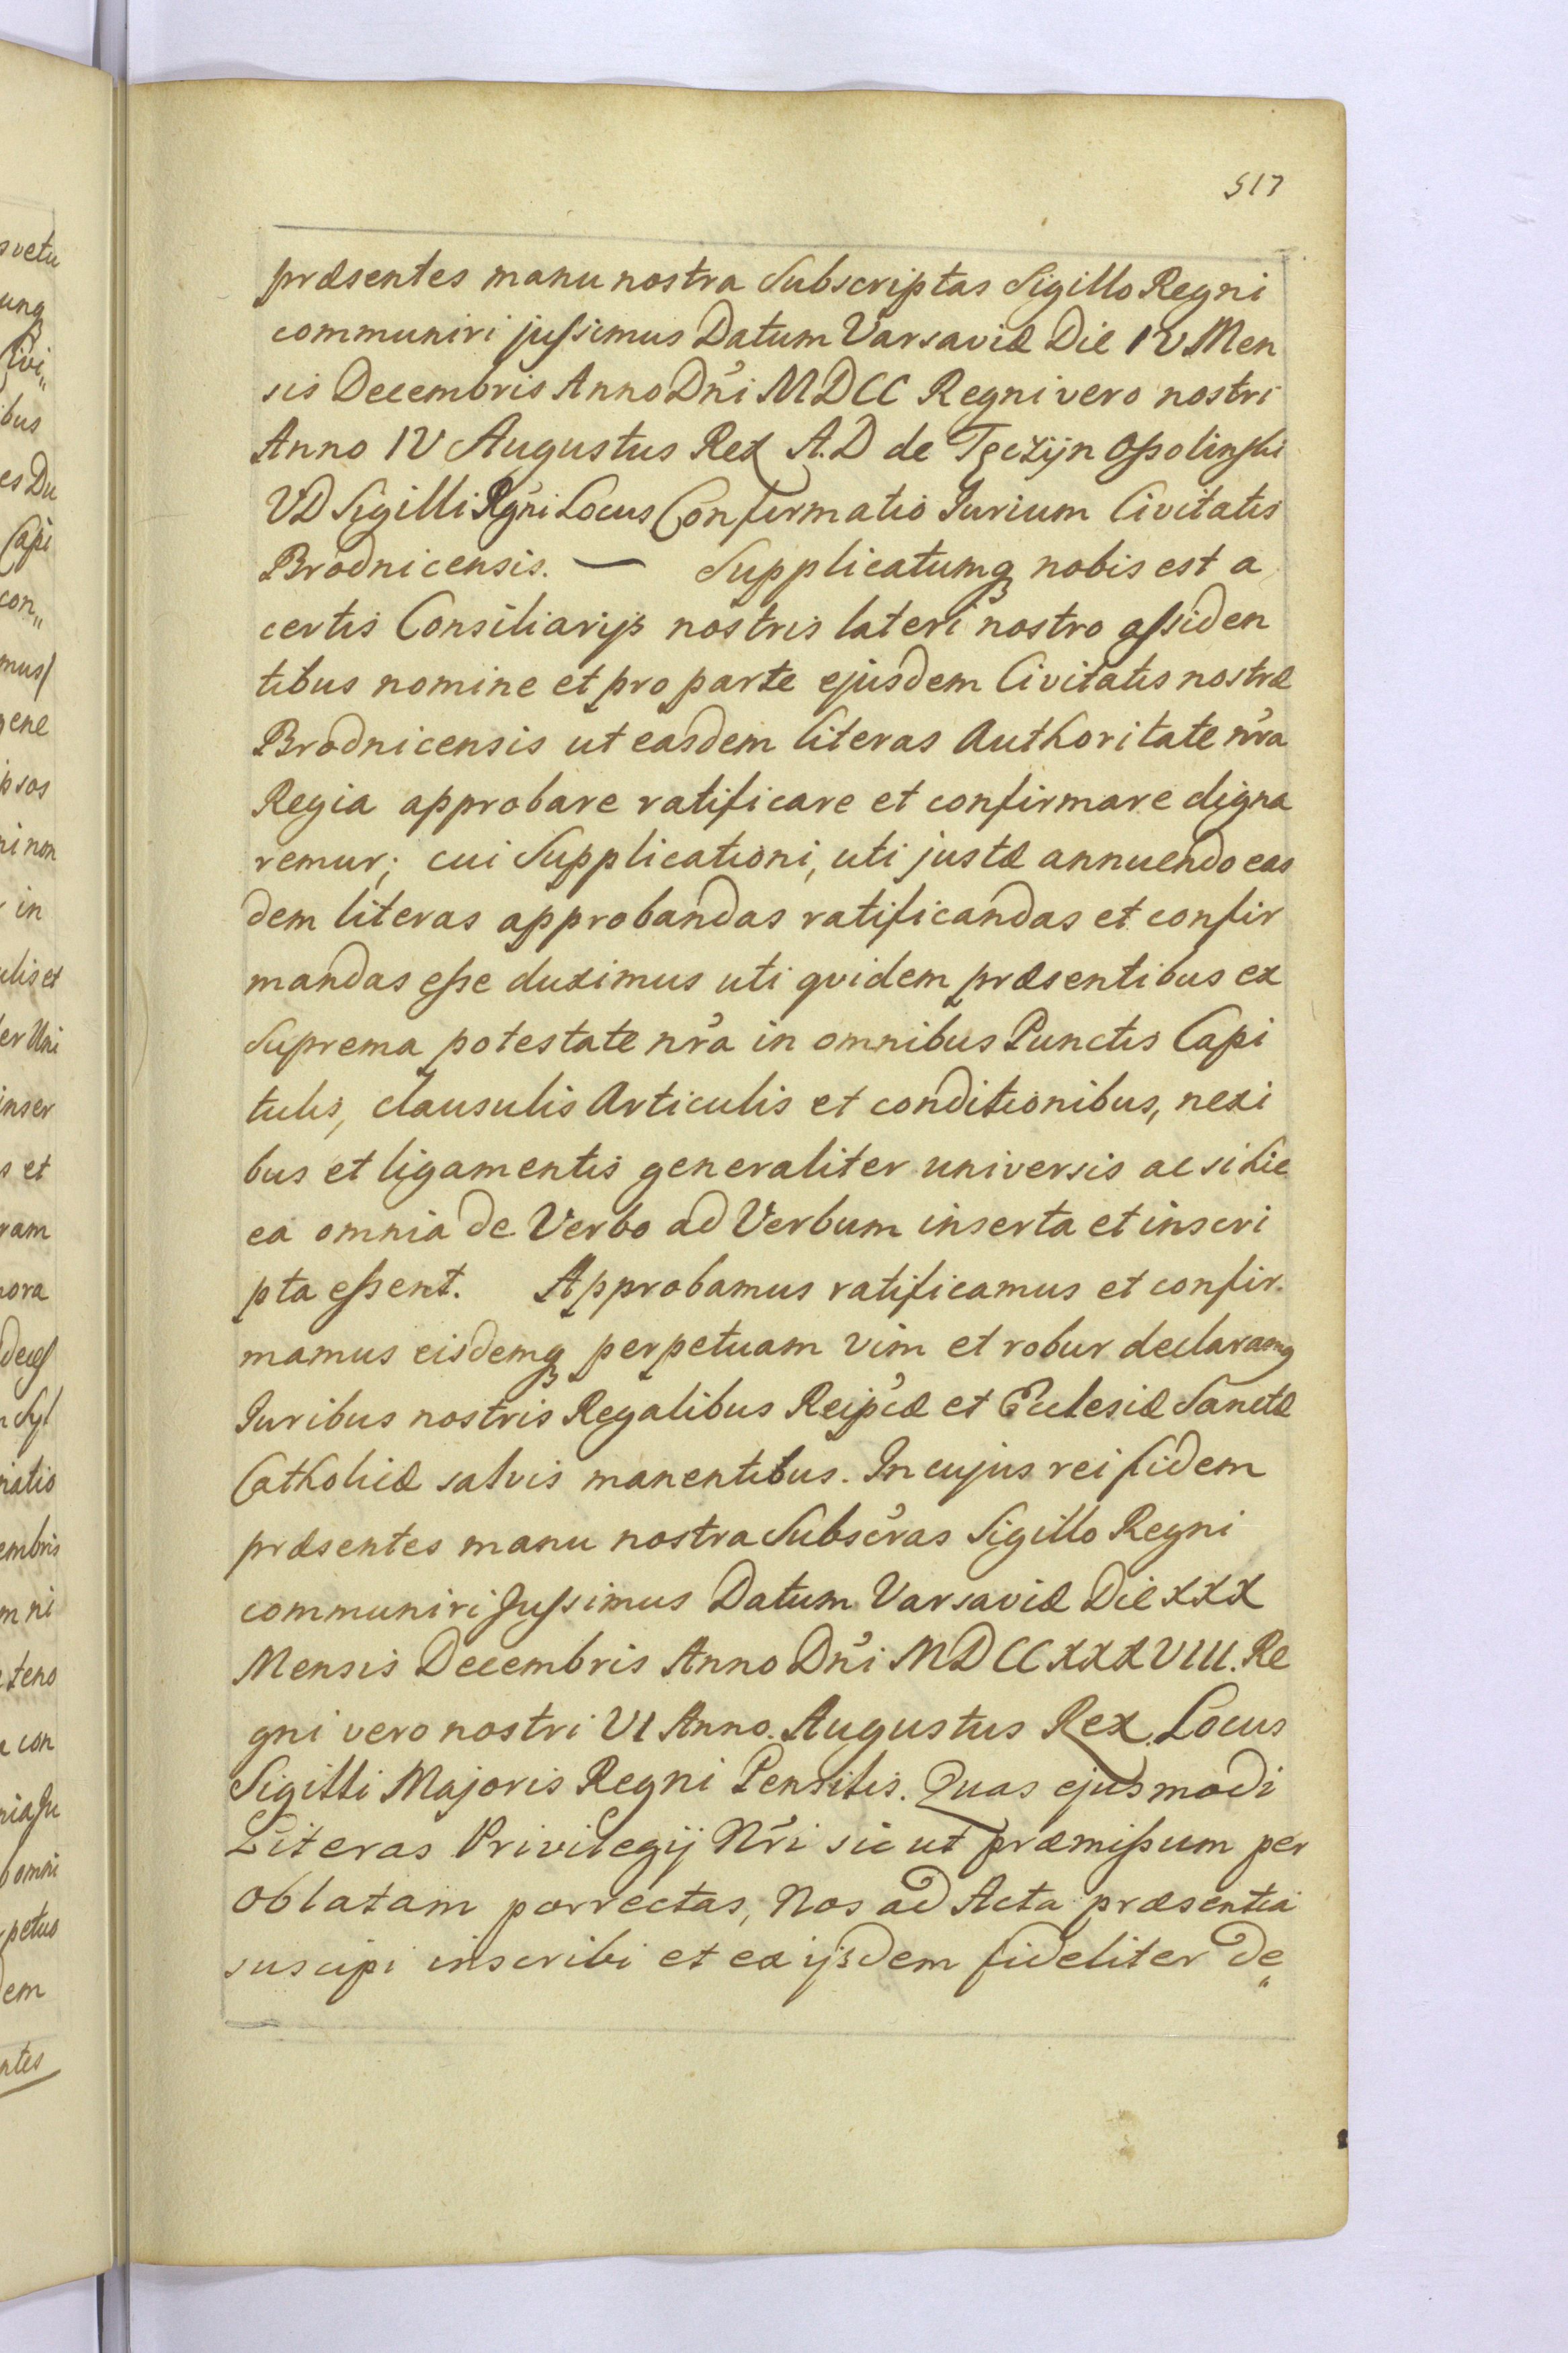 517
præsentes manu nostra Subscriptas Sigillo Regni
communiri jussimus Datum Varsaviæ Die IV Men
sis Decembris Anno Dn̄i MDCC Regni vero nostri
Anno IV Augustus Rex A.D de Tęczÿn Ossolinski
VD Sigilli Rgn̄i Locus Confirmatio Jurium Civitatis
Brodnicensis. — Supplicatumq nobis est a
certis Consiliarÿs nostris lateri nostro assiden
tibus nomine et pro parte ejusdem Civitatis nostræ
Brodnicensis ut easdem literas Authoritate nr̄a
Regia approbare ratificare et confirmare digna
remur; cui Supplicationi, uti justæ annuendo eas
dem literas approbandas ratificandas et confir
mandas esse duximus uti qvidem præsentibus ex
Suprema potestate nr̄a in omnibus Punctis Capi
tulis, clausulis Articulis et conditionibus, nexi
bus et ligamentis generaliter universis ac si hic
ea omnia de Verbo ad Verbum inserta et inscri
pta essent. Approbamus ratificamus et confir.
mamus eisdemq perpetuam vim et robur declaramq
Juribus nostris Regalibus Reip̄cæ et Ecclesiæ Sanctæ
Catholicæ salvis manentibus. In cujus rei fidem
præsentes manu nostra Subscr̄as Sigillo Regni
communiri Jussimus Datum Varsaviæ Die XXX
Mensis Decembris Anno Dn̄i MDCCXXXVIII. Re
gni vero nostri VI Anno. Augustus Rex. Locus
Sigilli Majoris Regni Pensilis. Quas ejusmodi
Literas Privilegÿ Nr̄i sic ut præmissum per
Oblatam porrectas, Nos ad Acta præsentia
suscipi inscribi et ex ÿsdem fideliter de„